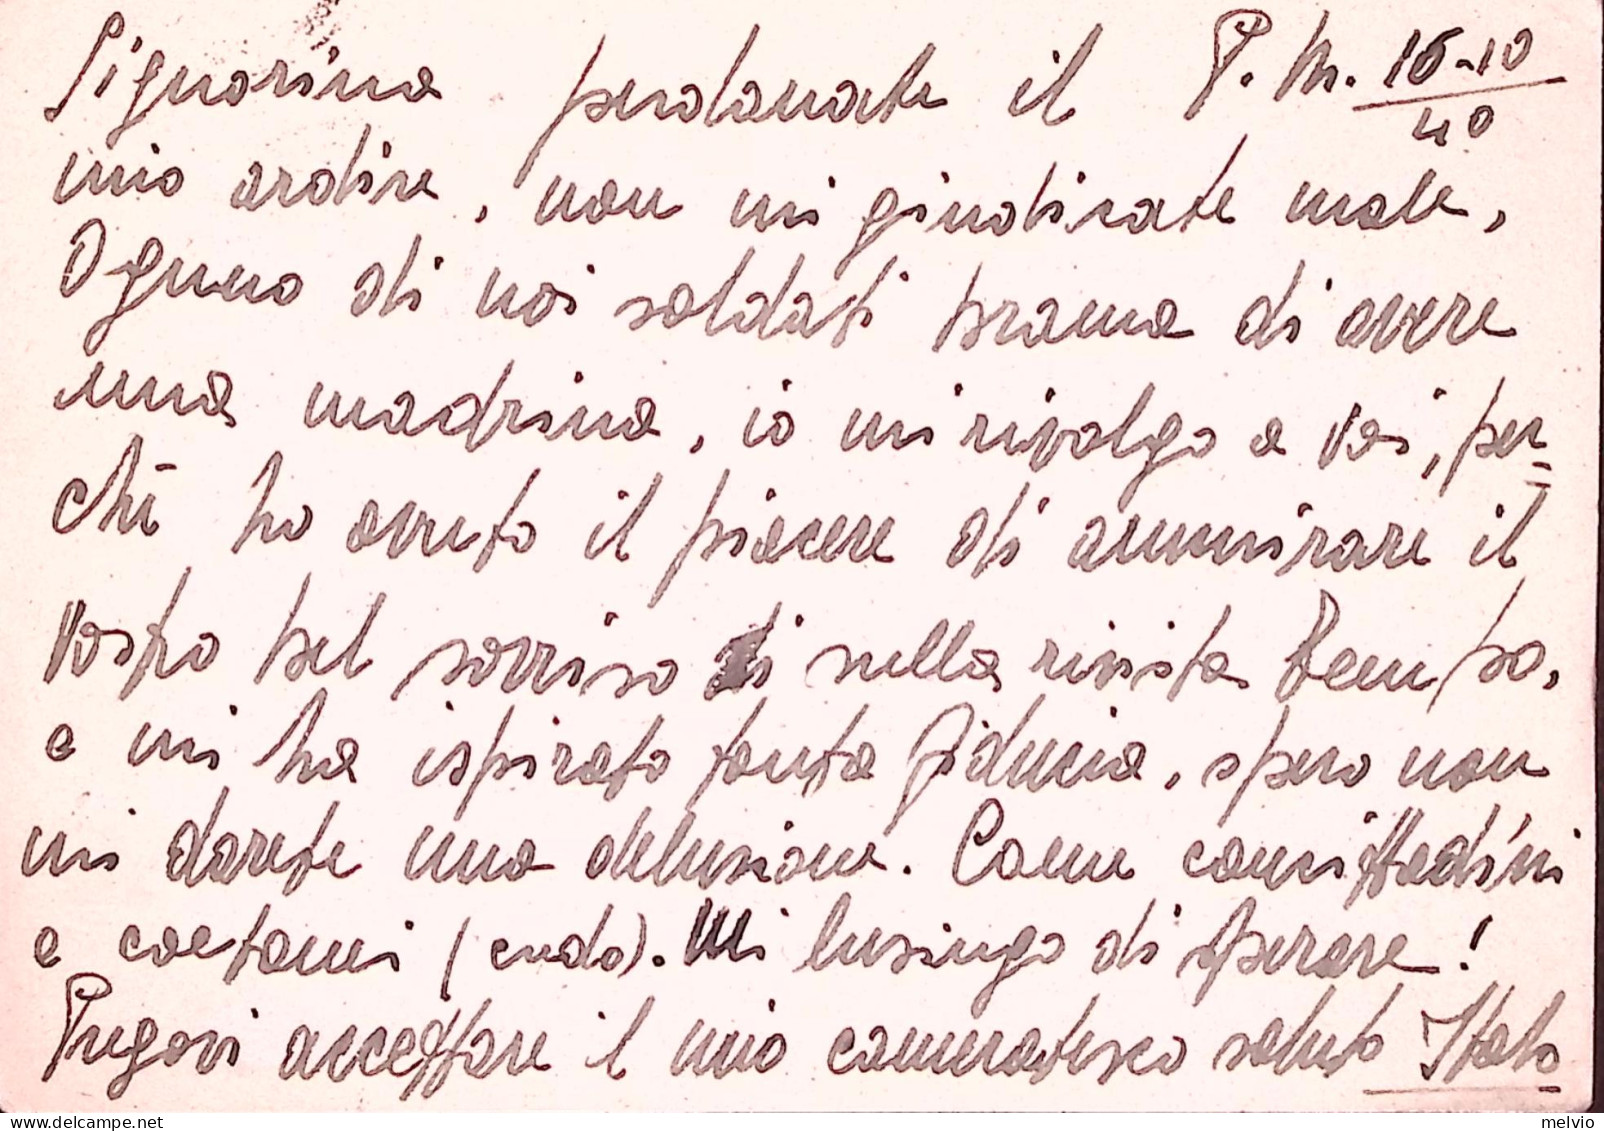 Signorina perdonate il P. M. 16-10
40
mio ardire, non mi giudicate male,
Ognuno di noi soldati brama di avere
una madrina, io mi rivolgo a Voi, per=
chē ho avuto il piacere di ammirare il
Vostro bel sorriso di nella rivista Tempo,
e mi ha ispirato tanta fiducia, spero non
mi darete una delusione. Come concittadini
e coetanei (credo). Mi lusingo di sperare!
Pregovi accettare il mio cameratesco saluto Italo
melvio